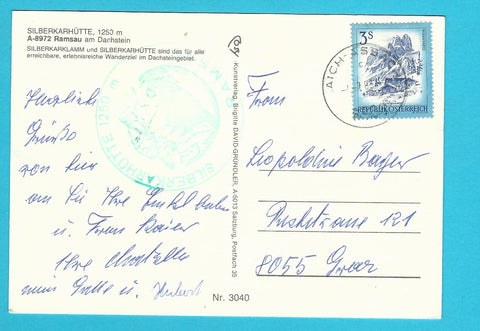 SILBERKARHÜTTE, 1250 m
A-8972 Ramsau am Dachstein
SILBERKARKLAMM und SILBERKARHÜTTE sind das für alle
erreichbare, erlebnisreiche Wanderziel im Dachsteingebiet.
Herzliche
Grüße
von hier
an Sie Ihre
u. Frau Kaiser
Ihre
mein Gatte u. Hubert
SILBERKARHÜTTE 1250
Kunstverlag, Brigitte DAVID-GRÜNDLER, A-5013 Salzburg, Postfach 35
Nr. 3040
3 S
REPUBLIK ÖSTERREICH
AICH-ASS
Frau
Leopoldine
121
8055 Graz